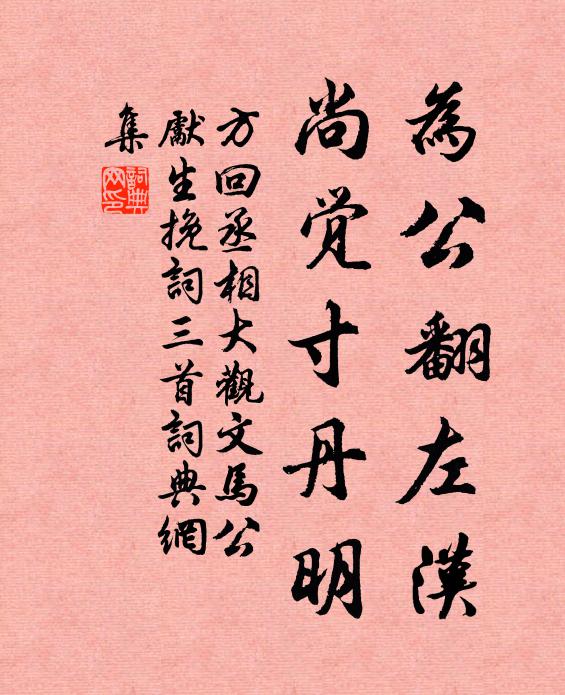 為公翻左漢
尚觉寸丹明
方回丞相大觀文馬公
獻生挽詞三首詞典網
集
詞典网印